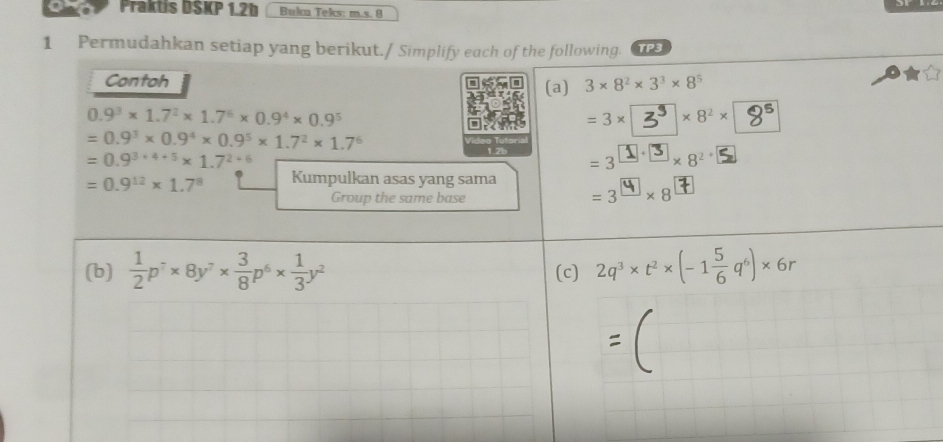 Praktis DSKP 1.2b Buku Teks: m.s. 8
1 Permudahkan setiap yang berikut./ Simplify each of the following. TP3
Contoh
0.9³ × 1.7² × 1.7⁶ × 0.9⁴ × 0.9⁵
= 0.9³ × 0.9⁴ × 0.9⁵ × 1.7² × 1.7⁶
= 0.9³⁺⁴⁺⁵ × 1.7²⁺⁶
= 0.9¹² × 1.7⁸
Video Tutorial
1.2b
Kumpulkan asas yang sama
Group the same base
(a) 3 × 8² × 3³ × 8⁵
= 3 × 3³ × 8² × 8⁵
= 3¹⁺³ × 8²⁺⁵
= 3⁴ × 8⁷
(b) 1/2 p⁷ × 8y⁷ × 3/8 p⁶ × 1/3 y²
(c) 2q³ × t² × (−1 5/6 q⁶) × 6r
= (